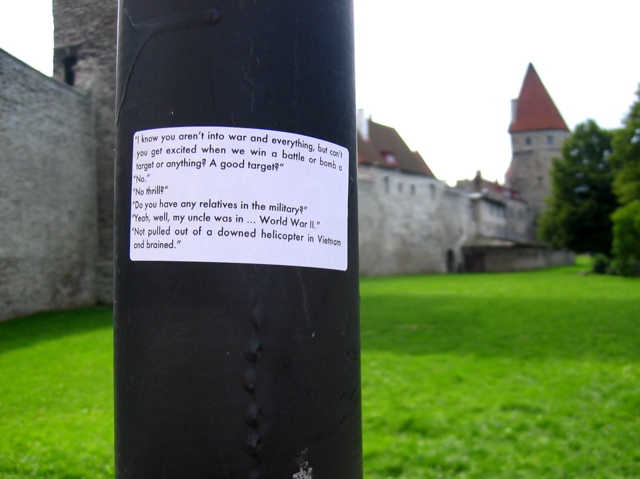 "I know you aren't into war and everything, but can't
you get excited when we win a battle or bomb a
target or anything? A good target?"
"No."
"No thrill?"
"Do you have any relatives in the military?"
"Yeah, well, my uncle was in ... World War II."
"Not pulled out of a downed helicopter in Vietnam
and brained."